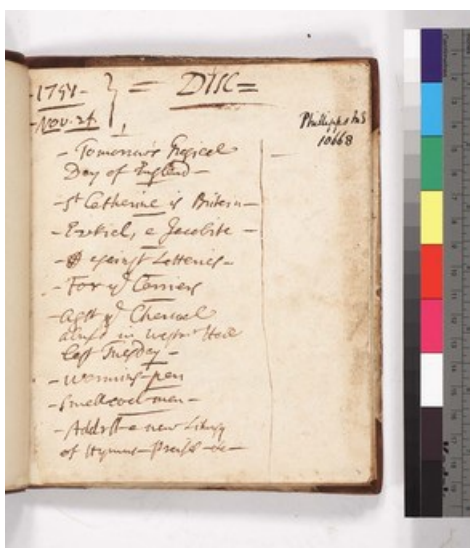 1751-
Nov. 24
= DISC =
Phillipps MS
10668
- Tomorrow
Day of England -
- St Catherine is Britain -
- Ezekiel, a Jacobite -
- against Lotteries -
- For ye
- Agst ye Charcoal
in Westmr Hall
last Tuesday -
- Warming-pan
- Smallcoal-man -
- Address a new Liturgy
of Hymns - Praise - &c -